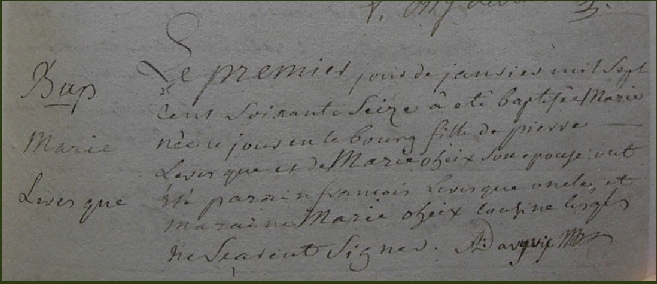 Bap
Marie
Levesque
Le premier jour de janvier mil Sept
cent Soixante Seize à eté baptisée Marie
née ce jour en le bourg fille de pierre
Levesque et de Marie oheix son epouse ont
été parain francois Levesque oncle, et
maraine Marie oheix cousine lesqls
ne Scavent Signer.